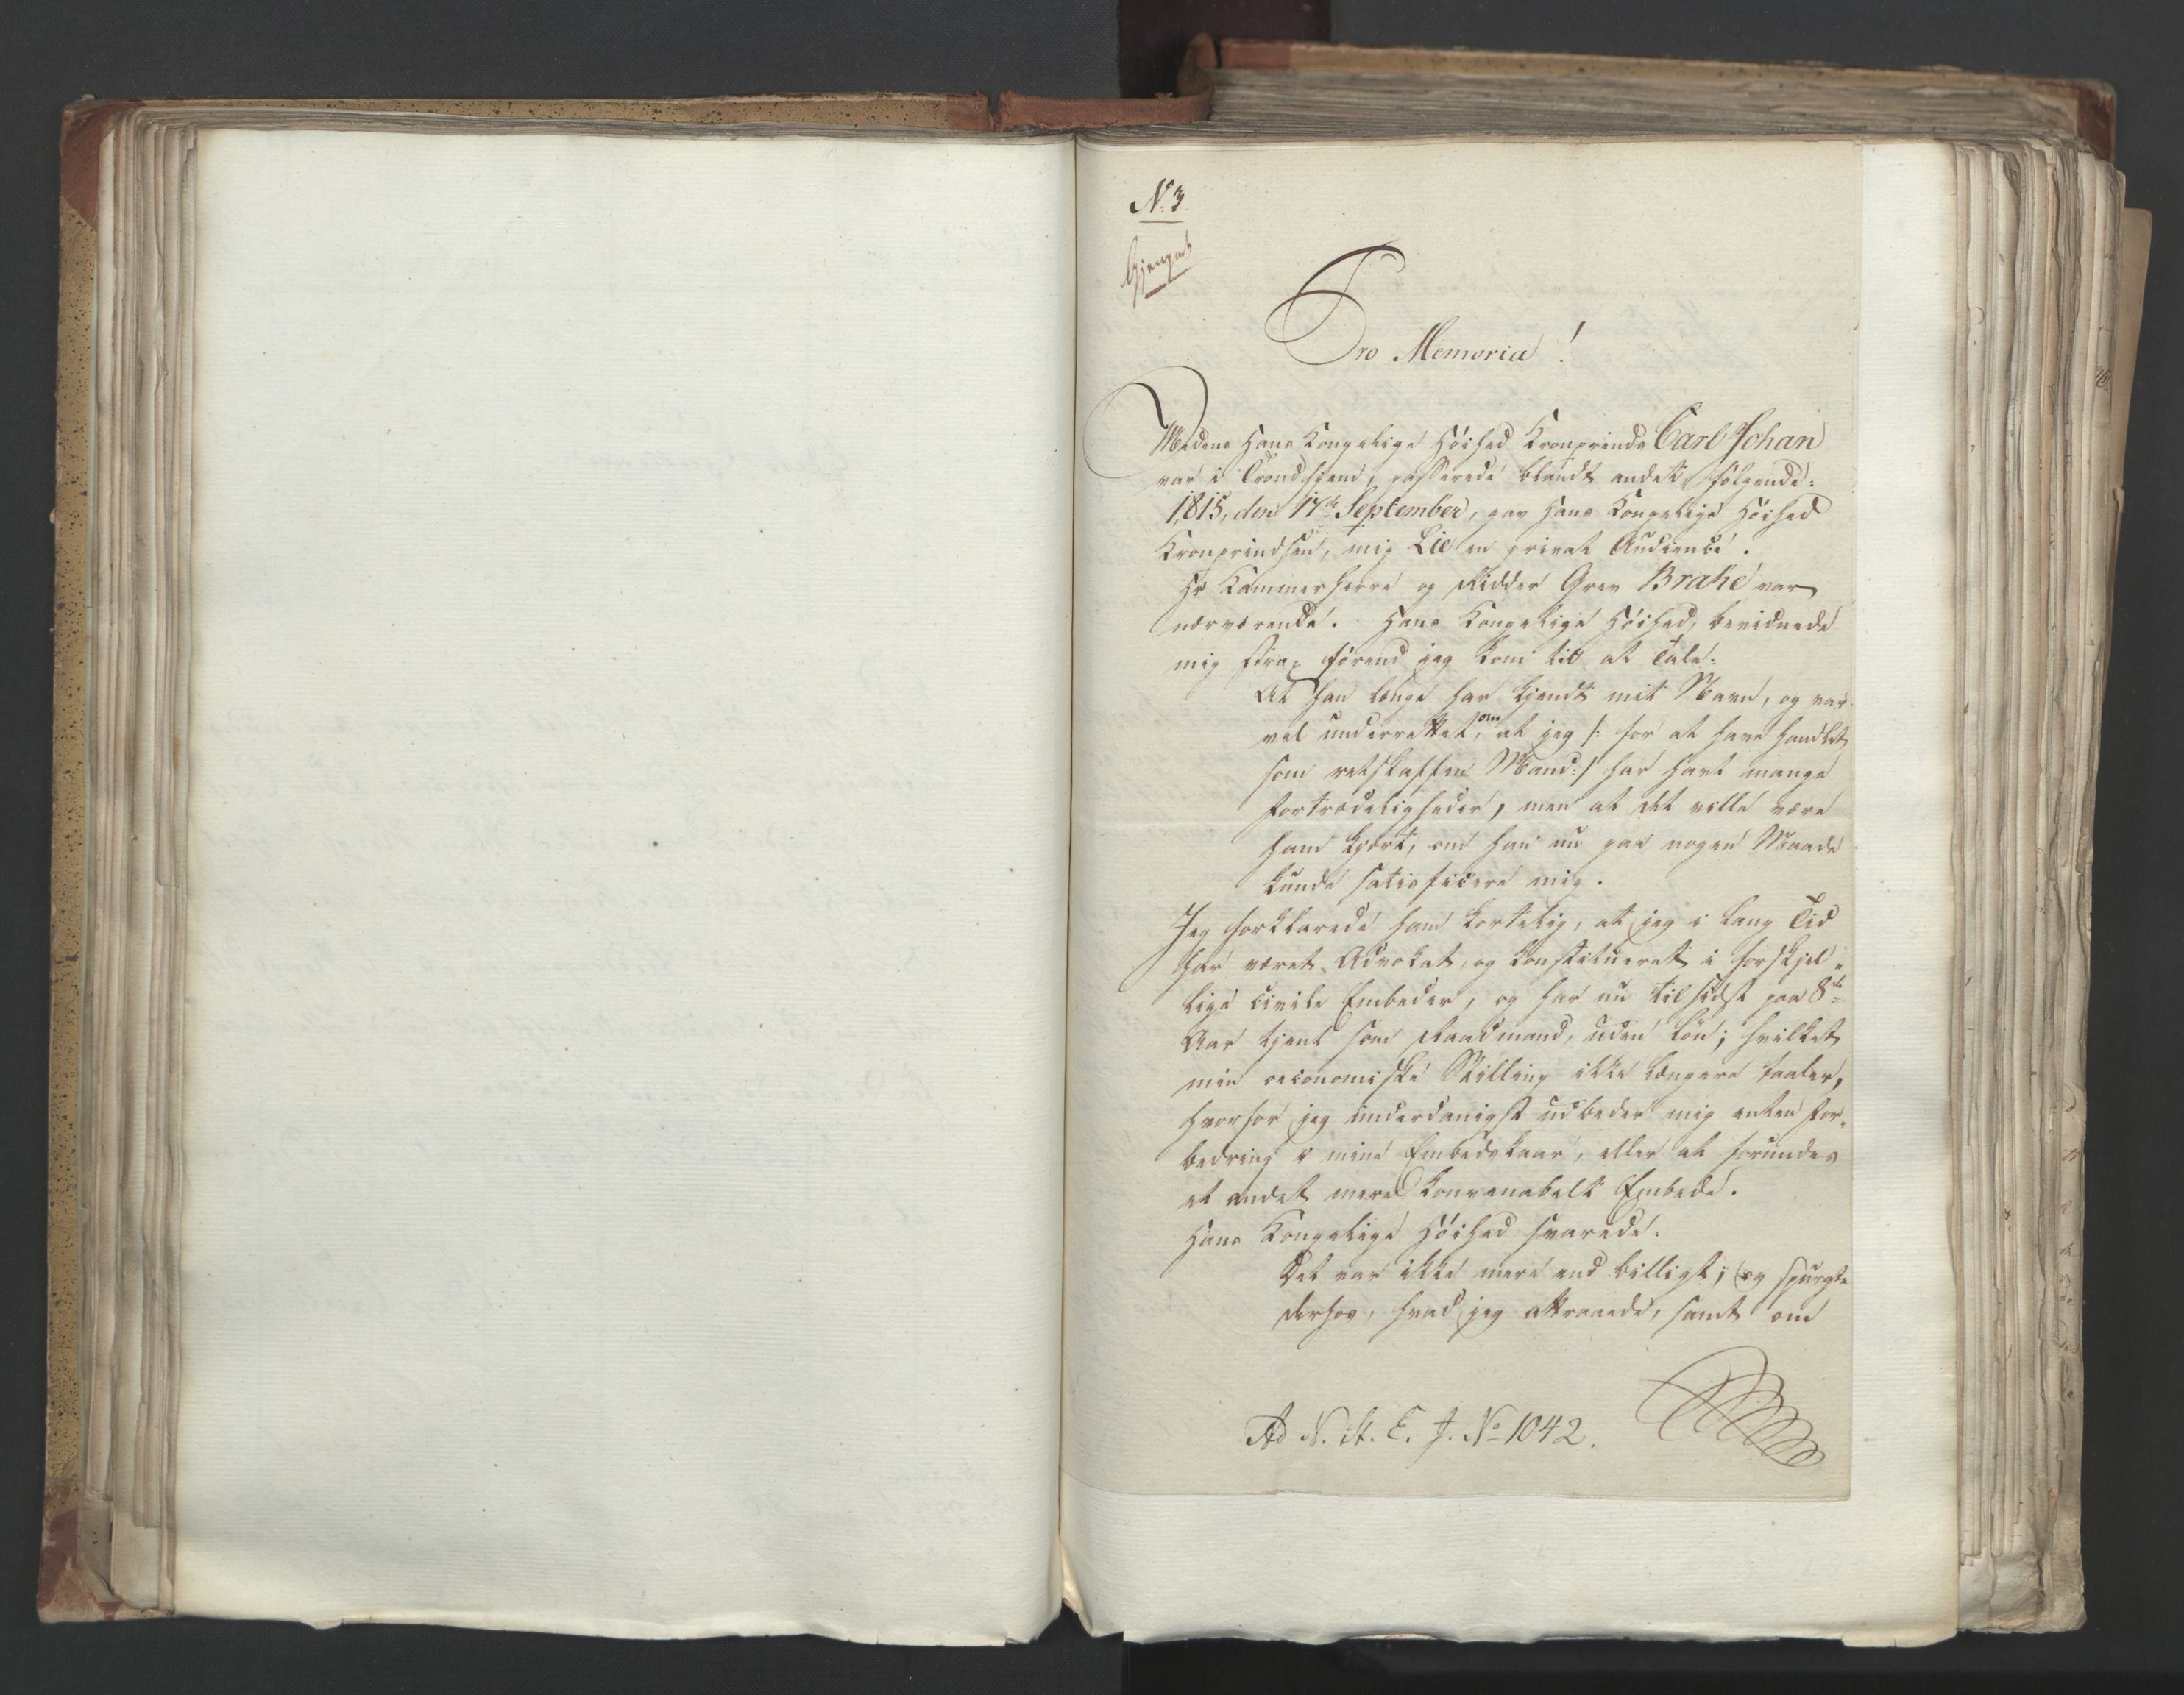 N. 3
Gjenpart
Pro Memoria!
Medens Hans Kongelige Höihed Kronprinds Carl Johan
var i Trondhjem, passerede blandt andet fölgende:
1815, den 17de September, gav Hans Kongelige Höihed
Kronprindsen, mig Lie en privat Audience.
Hr Kammerherre og Ridder Grev Brahe var
nærværende. Hans Kongelige Höihed, bevidnede
mig strax förend jeg kom til at Tale:
At han længe har kjendt mit Navn, og var
vel underrettet, om at jeg /: for at have handlet
som retskaffen Mand :/ har havt mange
Fortrædeligheder, men at det ville være
ham kjært, om han nu paa nogen Maade
kunde satisficere mig.
Jeg forklarede ham kortelig, at jeg i lang Tid
har været Advokat, og konstitueret i forskjel-
lige civile Embeder, og har nu tilsidst paa 8de
Aar tjent som Raadmand, uden Lön; hvilket
min oeconomiske Stilling ikke længere taaler,
hvorfor jeg underdanigst udbeder mig enten For-
bedring i mine Embedskaar, eller at forundes
et andet mere konvenabelt Embede.
Hans Kongelige Höihed svarede:
Det var ikke mere end billigt; og spurgte
derhos, hvad jeg attraaede, samt om
Ad N. St. E. J. No 1042.